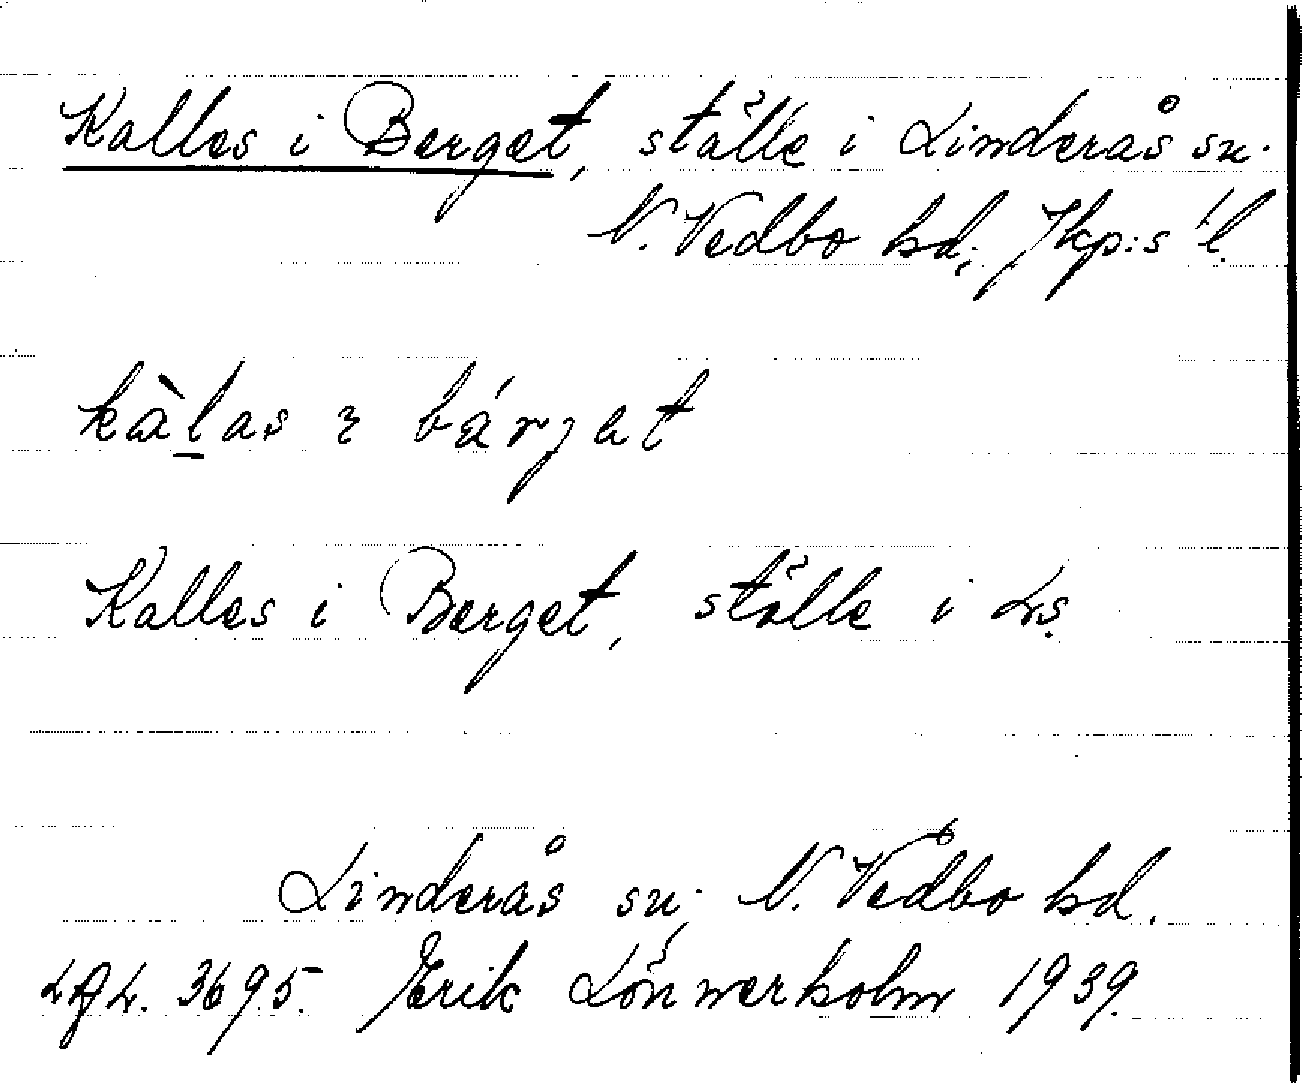 Kalles i Berget, ställe i Linderås sn.
N. Vedbo hd; Jkp:s l.
kàlas ɿ bárjat
Kalles i Berget, ställe i Ls.
Linderås sn; N. Vedbo hd.
LAL. 3695. Erik Lönnerholm 1939.